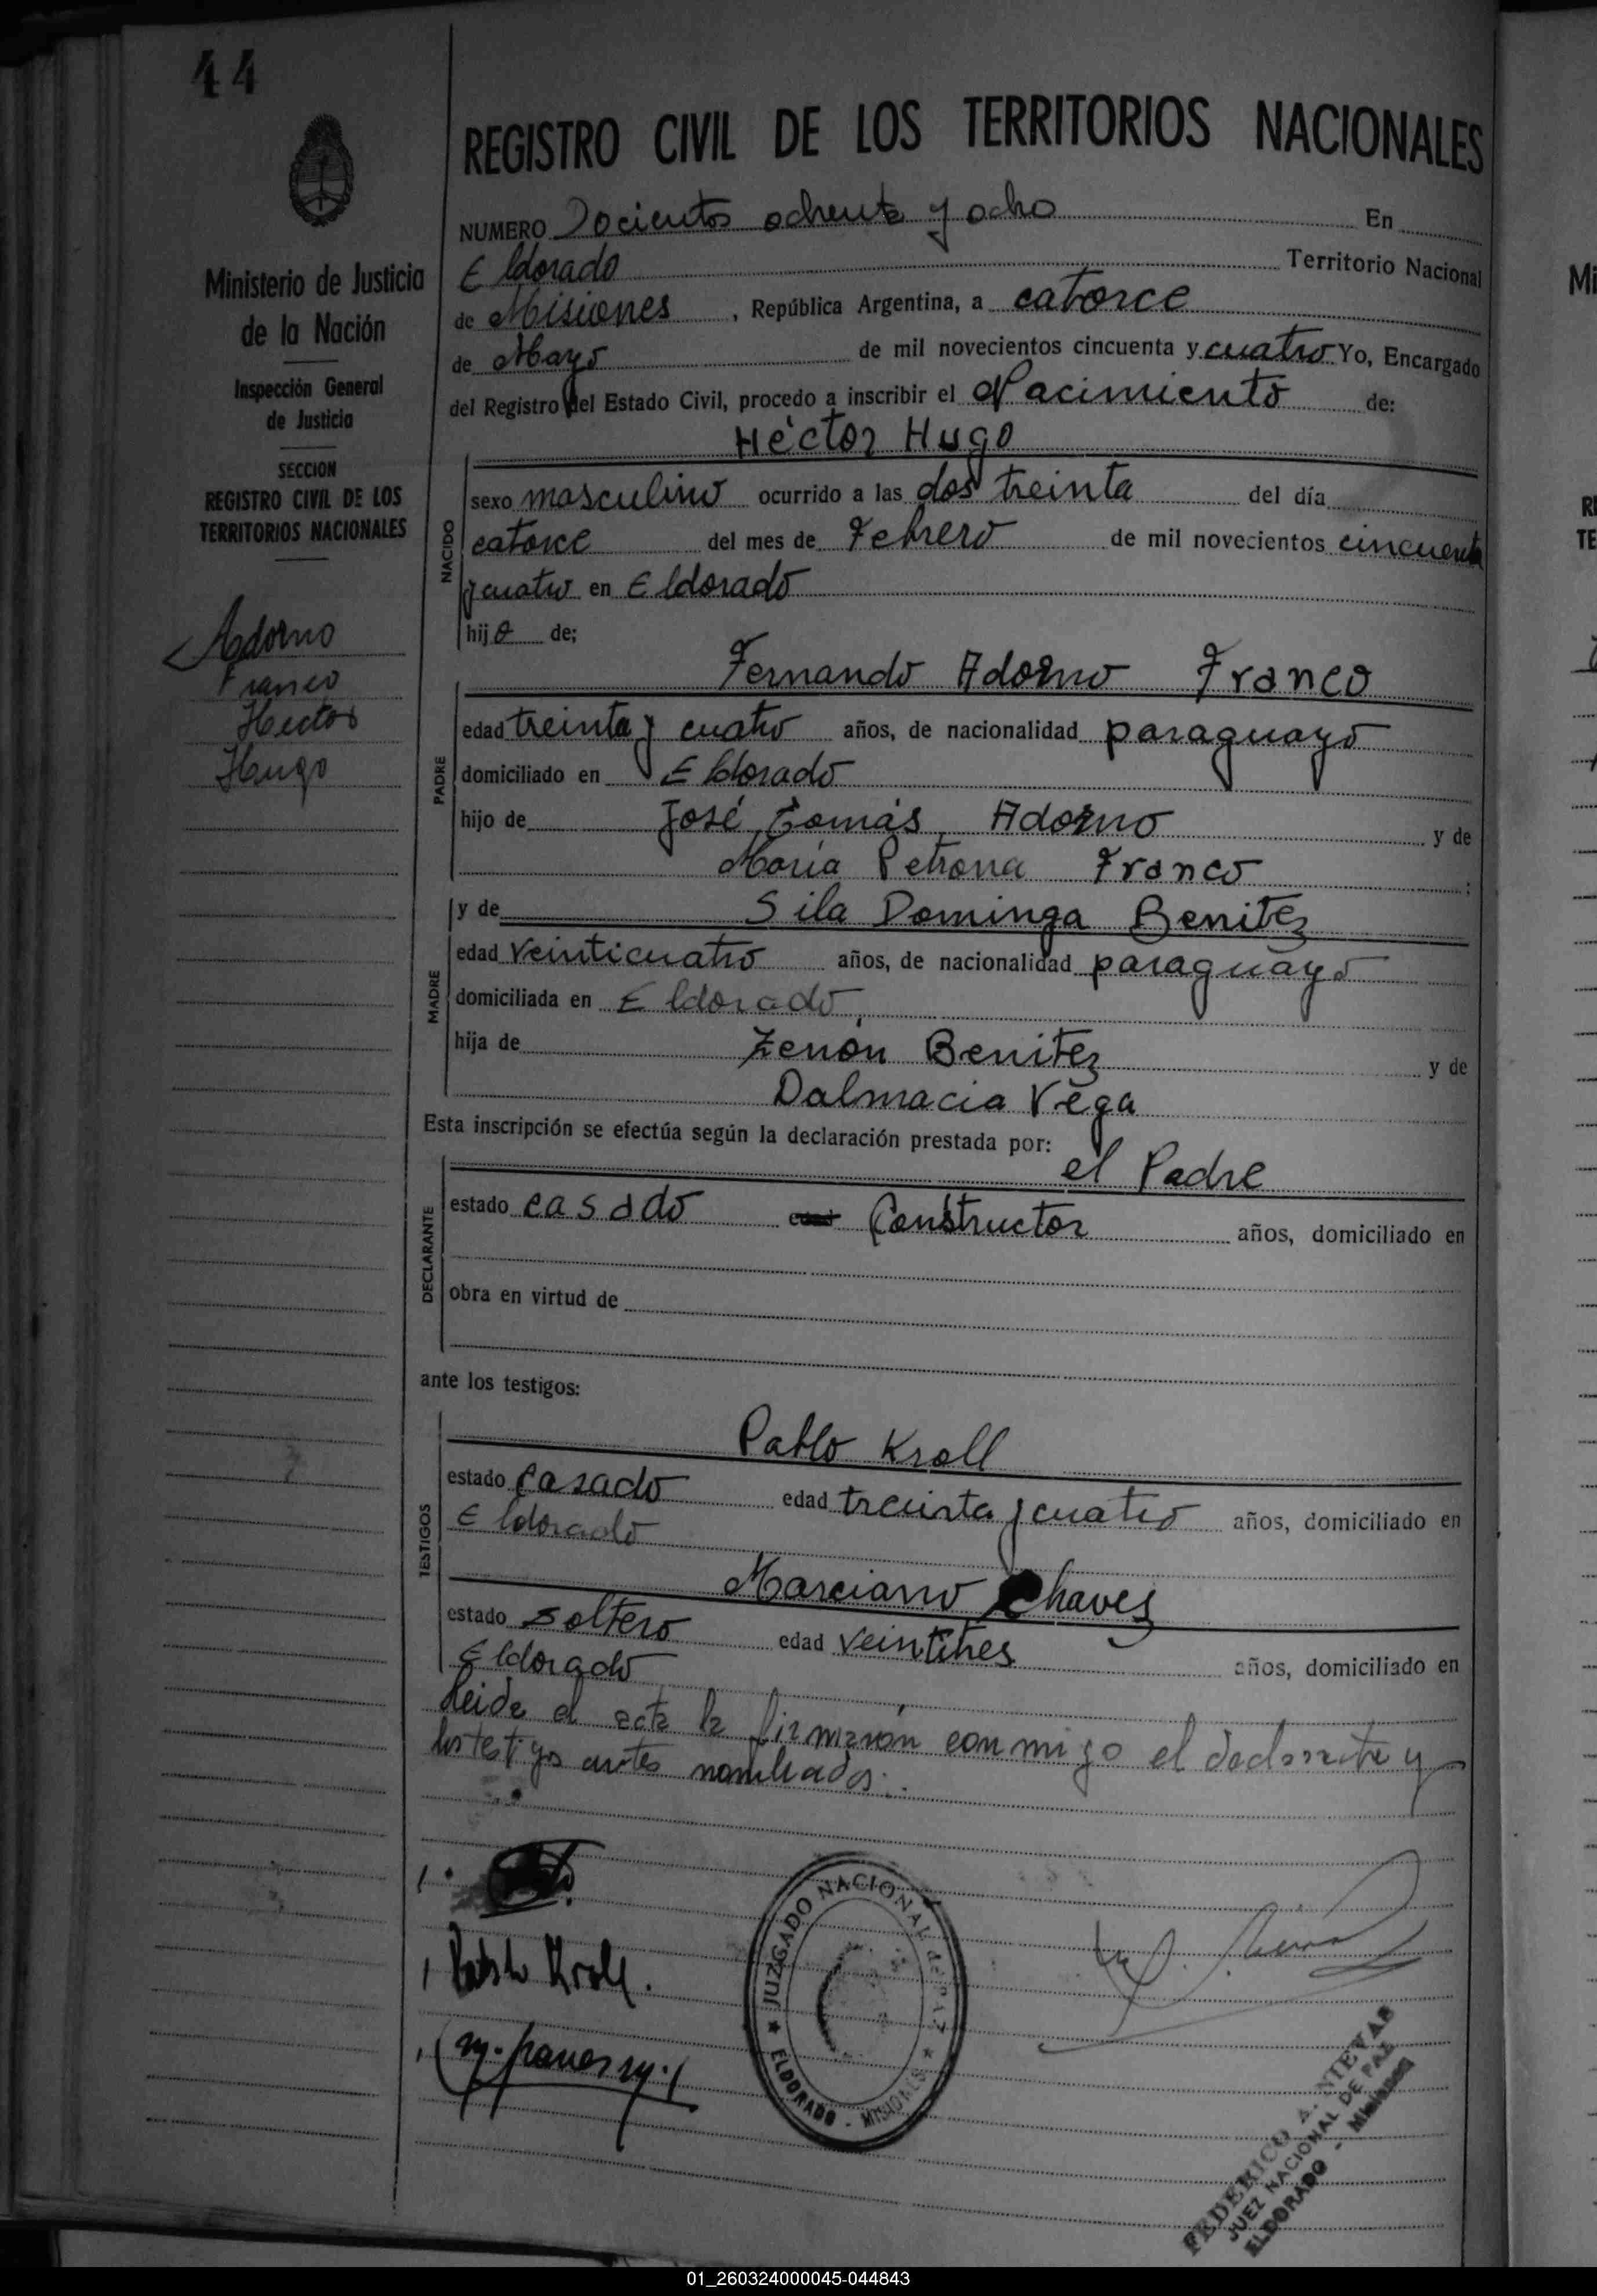 44
REGISTRO CIVIL DE LOS TERRITORIOS NACIONALES
NUMERO Docientos ochenta y ocho En
Eldorado Territorio Nacional
de Misiones, República Argentina, a catorce
de Mayo de mil novecientos cincuenta y cuatro Yo, Encargado
del Registro del Estado Civil, procedo a inscribir el Nacimiento de:
Héctor Hugo
Ministerio de Justicia
de la Nación
Inspección General
de Justicia
SECCION
REGISTRO CIVIL DE LOS
TERRITORIOS NACIONALES
Adorno
Franco
Hector
Hugo
NACIDO
sexo masculino ocurrido a las dos treinta del día
catorce del mes de Febrero de mil novecientos cincuenta
y cuatro en Eldorado
hijo de;
Fernando Adorno Franco
PADRE
edad treinta y cuatro años, de nacionalidad paraguayo
domiciliado en Eldorado
hijo de José Tomás Adorno y de
María Petrona Franco;
y de Sila Dominga Benitez
MADRE
edad veinticuatro años, de nacionalidad paraguayo
domiciliada en Eldorado,
hija de Zenón Benitez y de
Dalmacia Vega
Esta inscripción se efectúa según la declaración prestada por:
el Padre
DECLARANTE
estado casado Constructor años, domiciliado en
obra en virtud de
ante los testigos:
Pablo Kroll
TESTIGOS
estado Casado edad treinta y cuatro años, domiciliado en
Eldorado
Marciano Chaves
estado soltero edad veintitres años, domiciliado en
Eldorado
Leida el acta la firmaron conmigo el declarante y
los testigos antes nombrados.
Pablo Kroll.
JUZGADO NACIONAL de PAZ
ELDORADO - MISIONES
FEDERICO A. NIEVAS
JUEZ NACIONAL DE PAZ
ELDORADO - Misiones
01_260324000045-044843